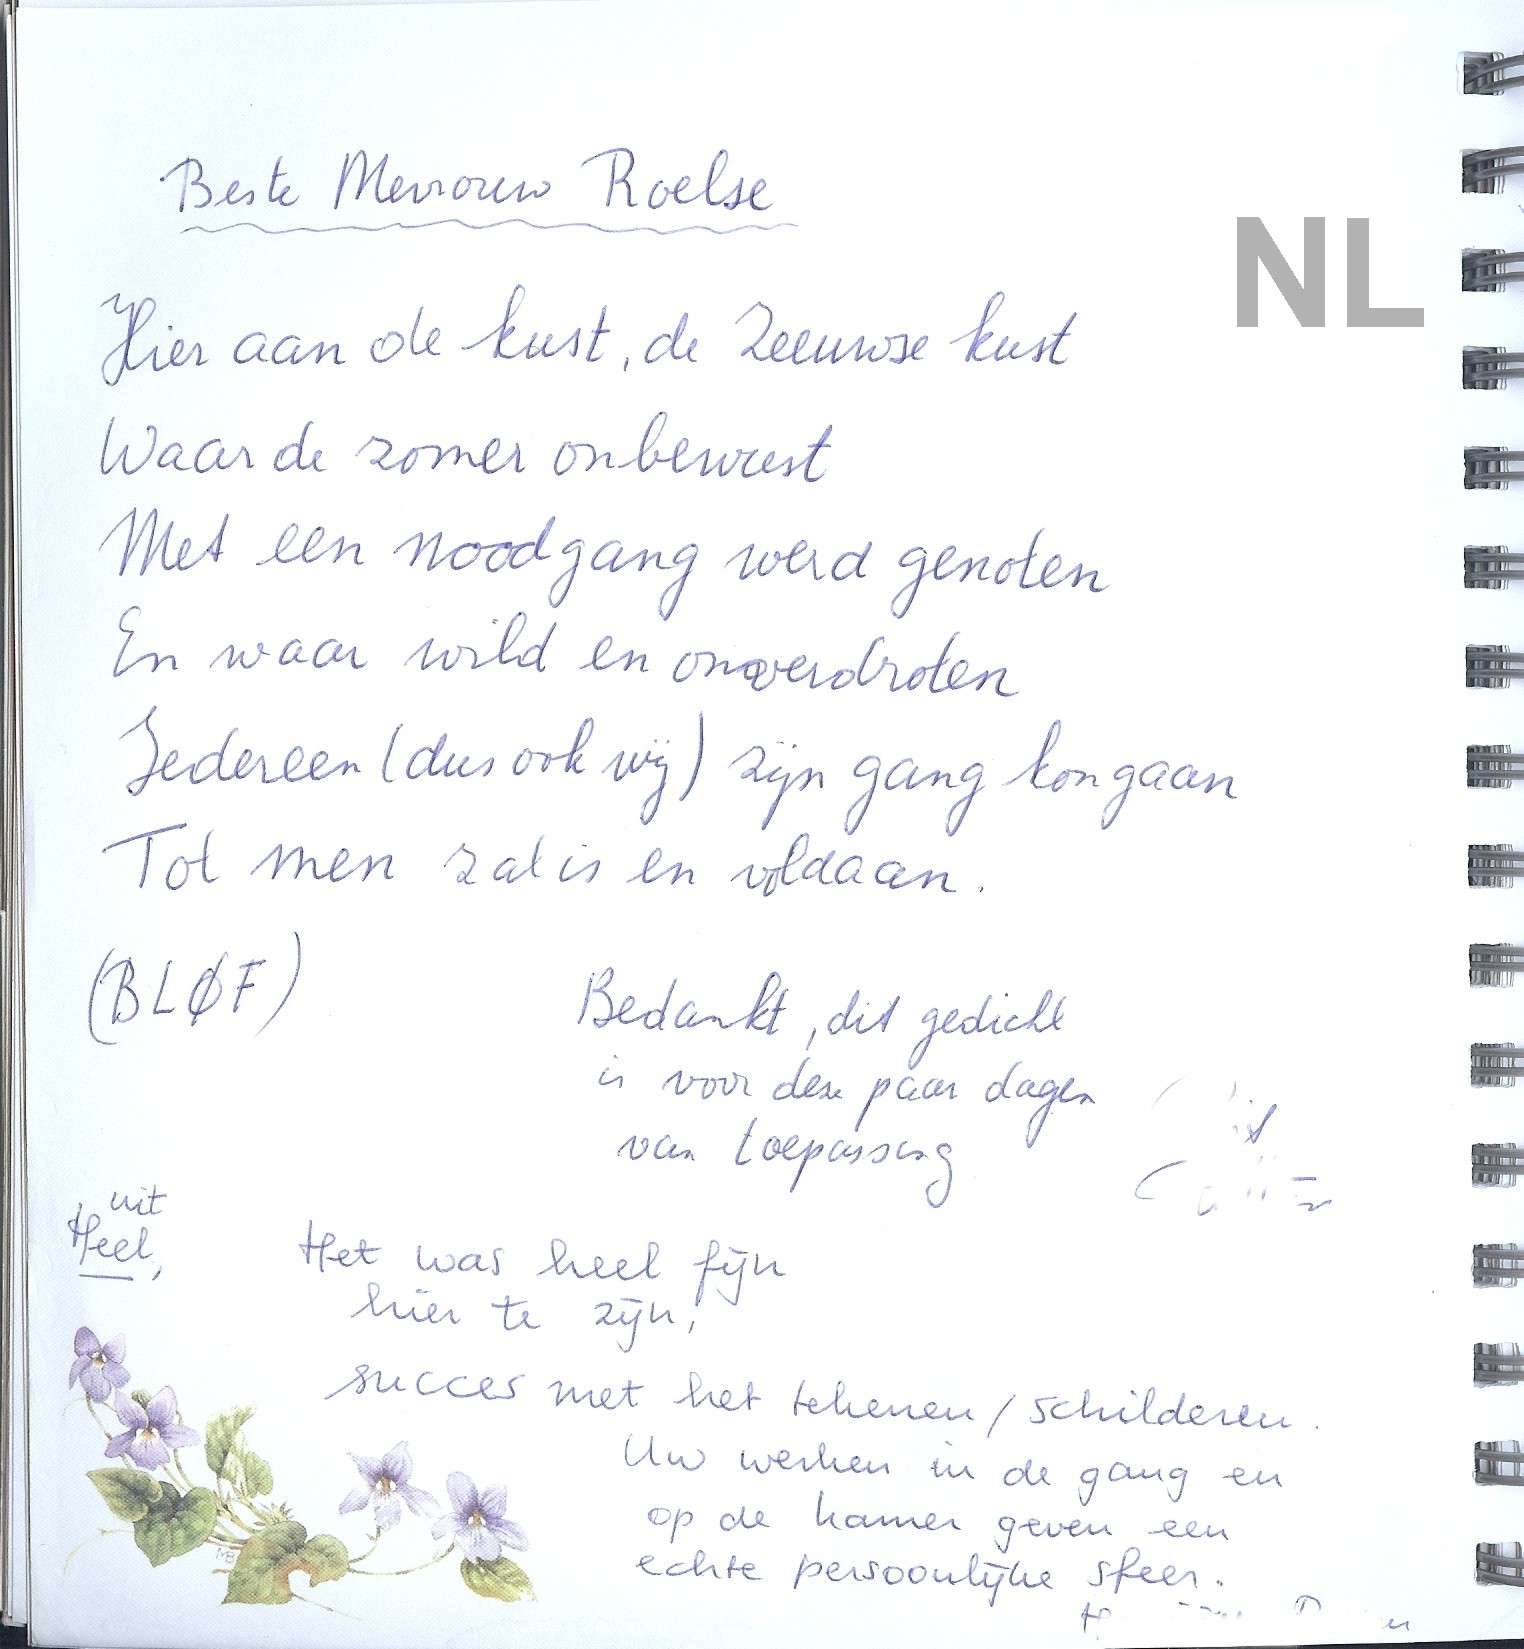 Beste Mevrouw Roelse
NL
Hier aan de kust, de Zeeuwse kust
Waar de zomer onbewust
Met een noodgang werd genoten
En waar wild en onverdroten
Iedereen (dus ook wij) zijn gang kon gaan
Tot men zat is en voldaan.
(BLØF)
Bedankt, dit gedicht
is voor deze paar dagen
van toepassing
uit
Heel,
Het was heel fijn
hier te zijn,
succes met het tekenen / schilderen.
Uw werken in de gang en
op de kamer geven een
echte persoonlijke sfeer.
MB